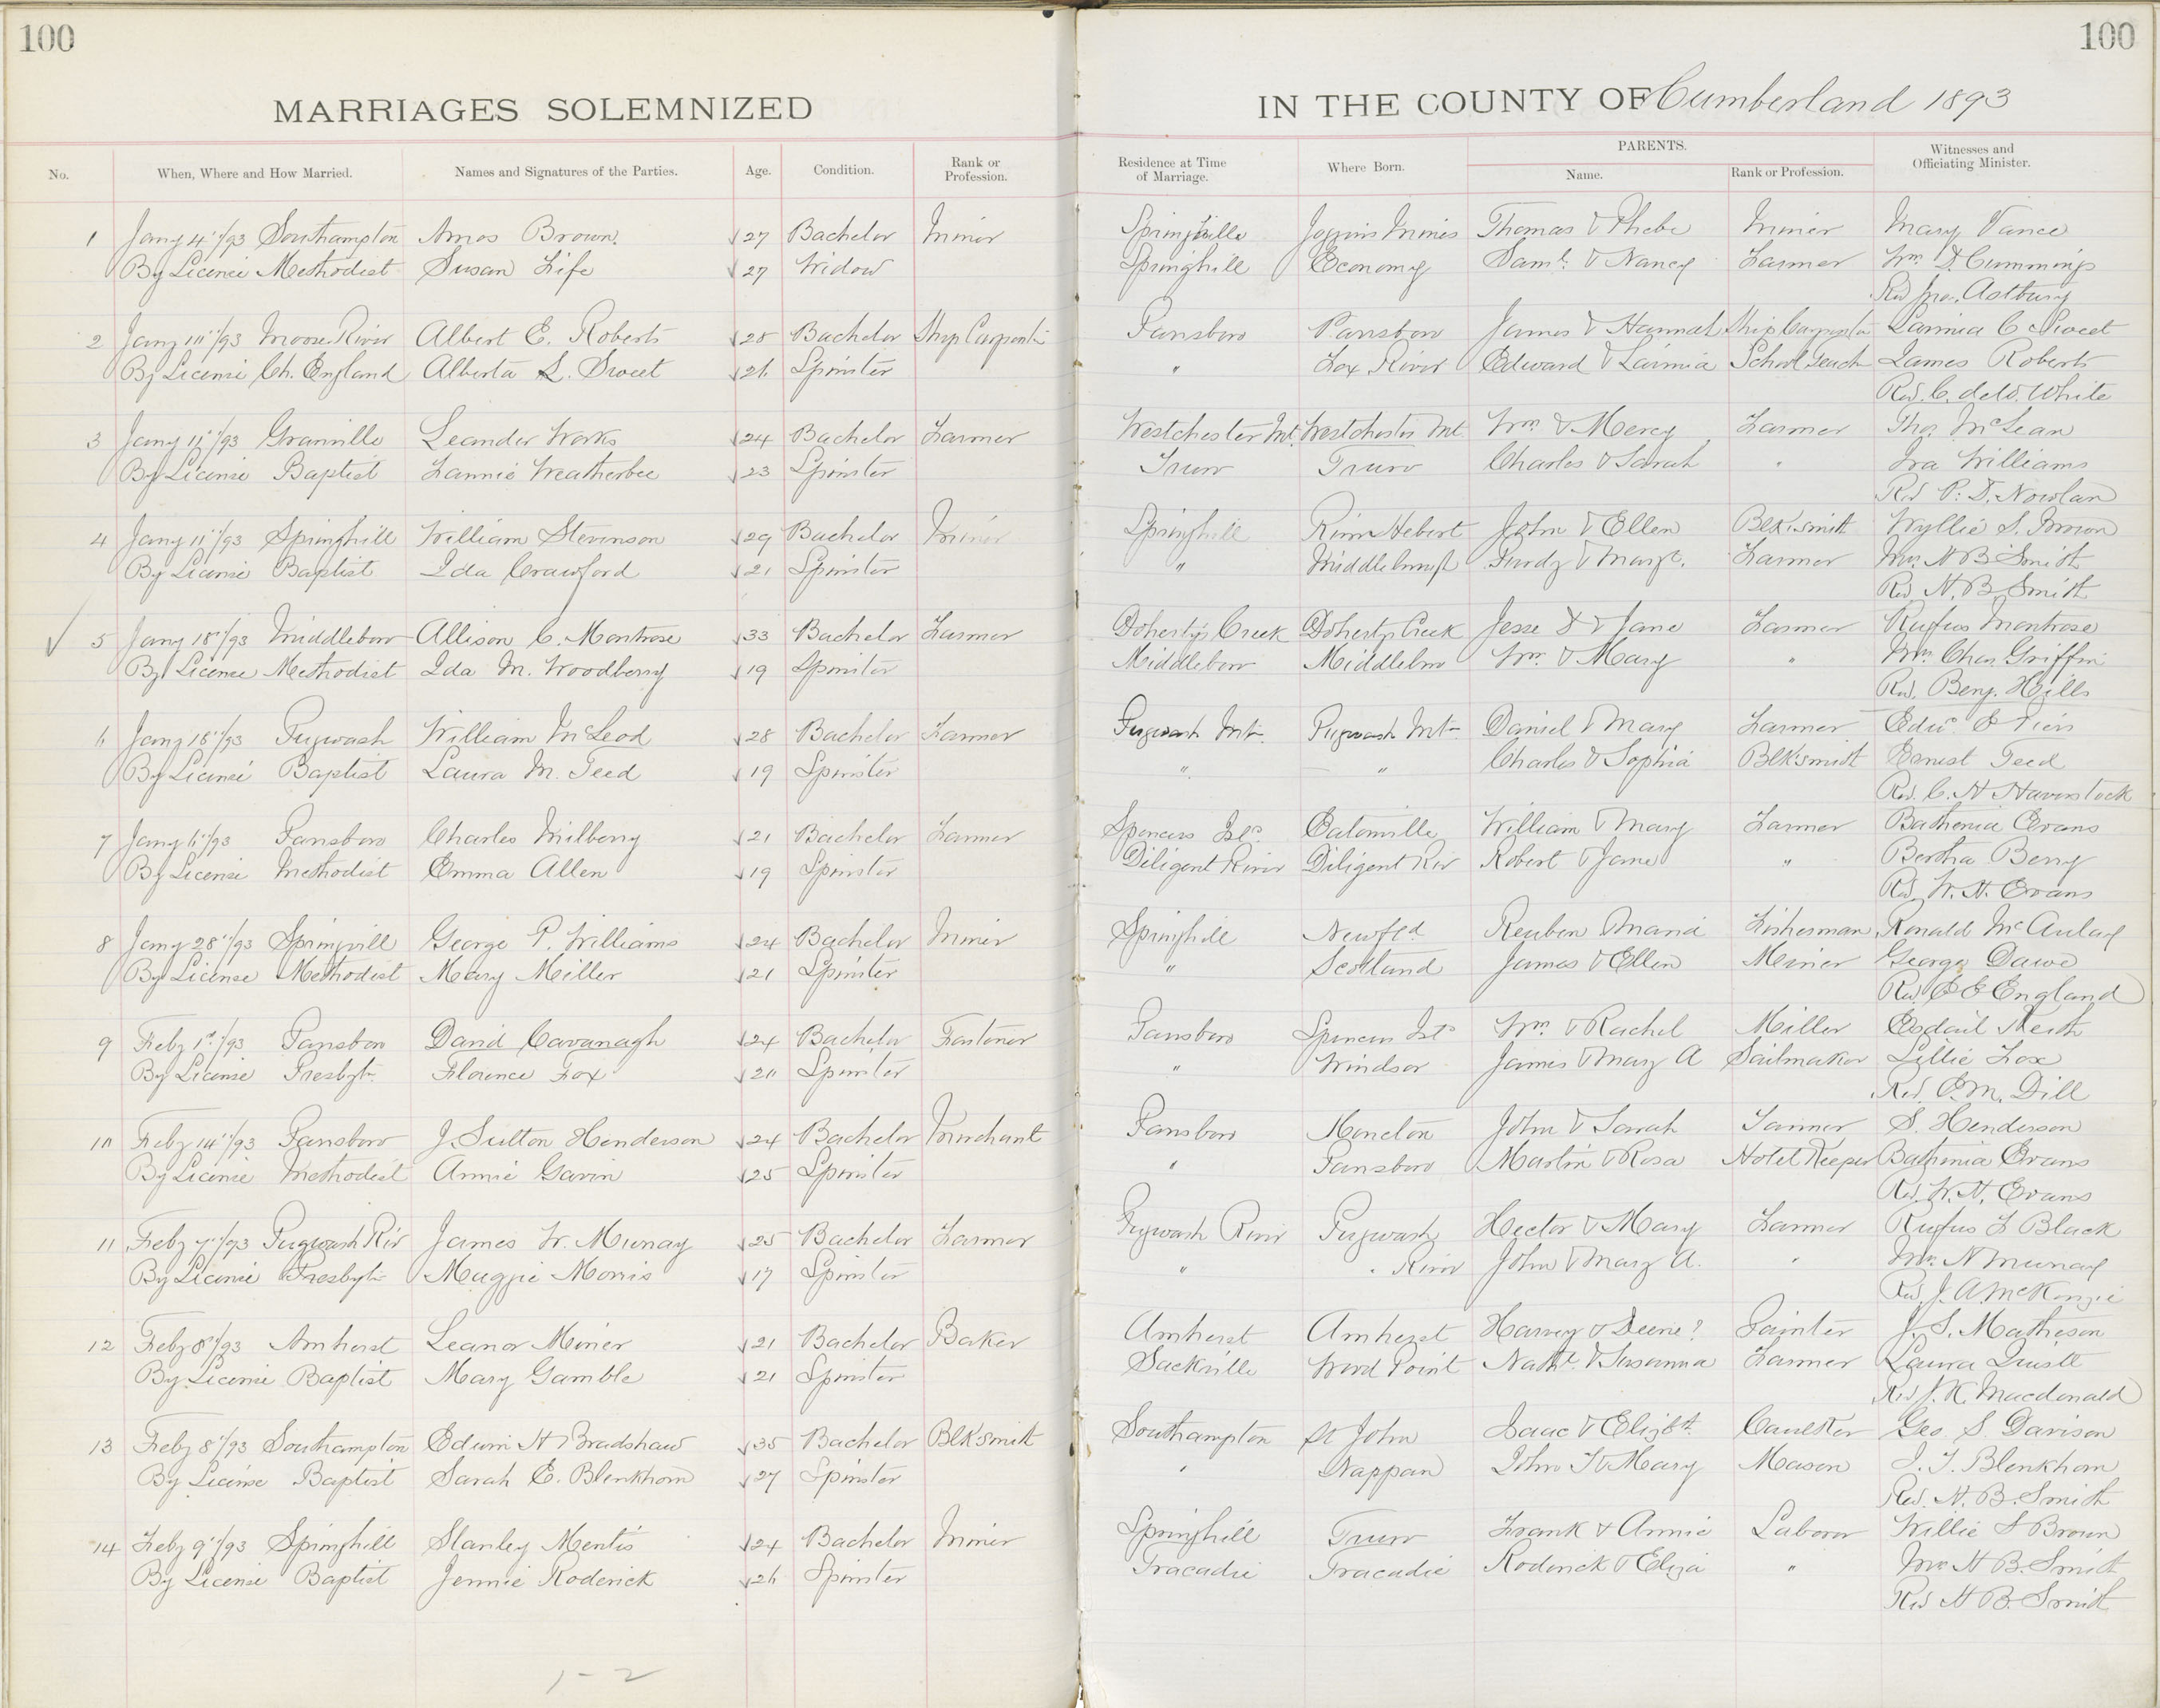 100
100
MARRIAGES SOLEMNIZED
IN THE COUNTY OF Cumberland 1893
No. When, Where and How Married. Names and Signatures of the Parties. Age. Condition. Rank or Profession. Residence at Time of Marriage. Where Born. PARENTS. Name. Rank or Profession. Witnesses and Officiating Minister.
1 Jany 4"/93 Southampton Amos Brown 27 Bachelor Miner Springhille Joggins Mines Thomas & Phebe Miner Mary Vance
By Licence Methodist Susan Fife 27 Widow Springhill Economy Saml. & Nancy Farmer Wm D. Cummings
Rev Jno. Astbury
2 Jany 11"/93 Moose River Albert E. Roberts 28 Bachelor Ship Carpenter Parrsboro Parrsboro James & Hannah Ship Carpenter Lavinia C Sweet
By License Ch. England Alberta L. Sweet 26 Spinster " Fox River Edward & Lavinia School Teach James Roberts
Rev. C. deW. White
3 Jany 11"/93 Granville Leander Works 24 Bachelor Farmer Westchester Mt. Westchester Mt. Wm & Mercy Farmer Thos McLean
By License Baptist Fannie Weatherbee 23 Spinster Truro Truro Charles & Sarah " Ira Williams
Rev P. D. Nowlan
4 Jany 11"/93 Springhill William Stevenson 29 Bachelor Miner Springhill River Hebert John & Ellen Blksmith Wyllie S. Brown
By License Baptist Ida Crawford 21 Spinster " Middleburgh Purdy & Margt. Farmer Mrs H B Smith
Rev. H. B. Smith
5 Jany 18"/93 Middleboro Allison C. Montrose 33 Bachelor Farmer Doherty's Creek Doherty Creek Jesse D & Jane Farmer Rufus Montrose
By Licence Methodist Ida M. Woodberry 19 Spinster Middleboro Middleboro Wm. & Mary " Mrs. Chas Griffin
Rev. Benj. Hills
6 Jany 18"/93 Pugwash William McLeod 28 Bachelor Farmer Pugwash Mtn. Pugwash Mtn Daniel & Mary Farmer Edw.
By License Baptist Laura M. Teed 19 Spinster " " Charles & Sophia Blksmith Ernest Teed
Rev. C. H Haverstock
7 Jany 6"/93 Parrsboro Charles Milberry 21 Bachelor Farmer Spencers Isd. Eatonville William & Mary Farmer Bathenia Evans
By License Methodist Emma Allen 19 Spinster Diligent River Diligent Riv Robert & Jane " Bertha Berry
Rev. W. H. Evans
8 Jany 28"/93 Springvill George P. Williams 24 Bachelor Miner Springhill Newfld Reuben Maria Fisherman Ronald McAulay
By License Methodist Mary Miller 21 Spinster " Scotland James & Ellen Miner George Dawe
Rev. E E England
9 Feby 1st/93 Parrsboro David Cavanagh 24 Bachelor Parrsboro Spencers Isd Wm. & Rachel Miller Keith
By License Presbytn. Florence Fox 20 Spinster " Windsor James & Mary A Sailmaker Lillie Fox
Rev. E. M. Dill
10 Feby 14"/93 Parrsboro J. Sutton Henderson 24 Bachelor Merchant Parrsboro Moncton John & Sarah S. Henderson
By License Methodist Annie Gavin 25 Spinster " Parrsboro Martin & Rosa Hotel Keeper Bathinia Evans
Rev. W. H. Evans
11 Feby 7"/93 Pugwash Riv James W. Murray 25 Bachelor Farmer Pugwash River Pugwash Hector & Mary Farmer Rufus F Black
By License Presbytn Maggie Morris 17 Spinster " " River John & Mary A. " Mrs. N Murray
Rev. J. A. McKenzie
12 Feby 8"/93 Amherst Leanor Miner 21 Bachelor Baker Amherst Amherst Harvey & Deene? Painter J. S. Matheson
By License Baptist Mary Gamble 21 Spinster Sackville Wood Point Nathl. & Susanna Farmer Laura
Rev J. K. Macdonald
13 Feby 8"/93 Southampton Edwin H Bradshaw 35 Bachelor Blksmith Southampton St John Isaac & Elizbth. Caulker Geo. S. Davison
By License Baptist Sarah E. Blenkhorn 27 Spinster " Nappan John T & Mary Mason J. T. Blenkhorn
Rev. H. B. Smith
14 Feby 9"/93 Springhill Stanley Mentis 24 Bachelor Miner Springhill Truro Frank & Annie Laborer Willie S Brown
By License Baptist Jennie Roderick 26 Spinster Tracadie Tracadie Roderick & Eliza " Mrs H B. Smith
Rev H B. Smith
1-2